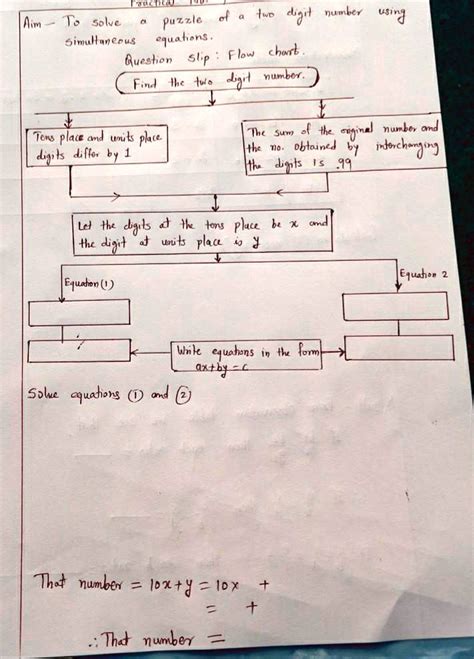 Practical
Aim - To solve a puzzle of a two digit number using
simultaneous equations.
Question slip : Flow chart.
Find the two digit number.
Tens place and units place
digits differ by 1
The sum of the original number and
the no. obtained by interchanging
the digits is .99
Let the digits at the tens place be x and
the digit at units place is y
Equation (1)
Equation 2
Write equations in the form
ax+by = c
Solve equations ① and ②
That number = 10x + y = 10x +
= +
∴ That number =